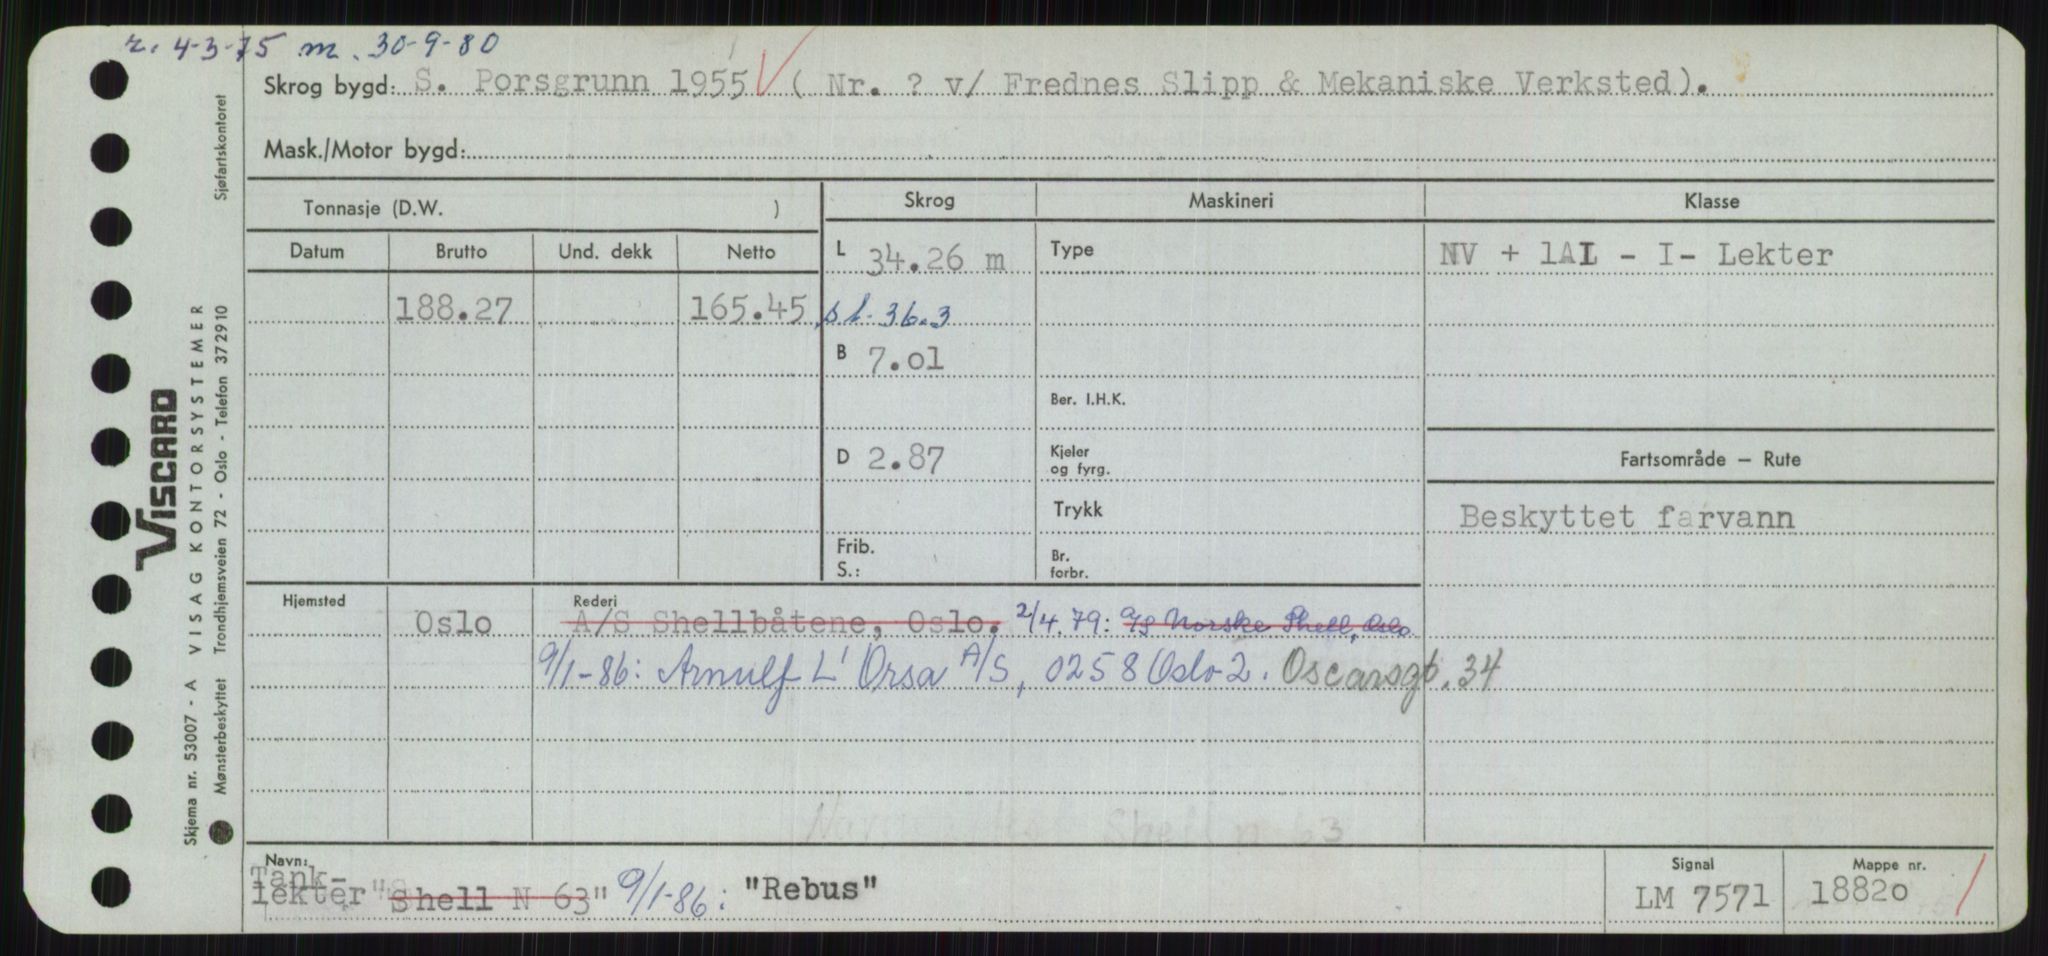 r. 4-3-75 m. 30-9-80
Skrog bygd: S. Porsgrunn 1955 V ( Nr. ? v/ Frednes Slipp & Mekaniske Verksted).
Mask./Motor bygd:
Tonnasje (D.W. )
Skrog
Maskineri
Klasse
Datum
Brutto
Und. dekk
Netto
L 34.26 m
Type
NV + 1AI - I- Lekter
188.27
165.45
s.l. 36.3
B 7.o1
Ber. I.H.K.
D 2.87
Kjeler
og fyrg.
Fartsområde – Rute
Trykk
Beskyttet farvann
Frib.
S.:
Br.
forbr.
Hjemsted
Oslo
Rederi
A/S Shellbåtene, Oslo. 2/4.79: A/S Norske Shell, Oslo.
9/1-86: Arnulf L' Orsa A/S, 0258 Oslo 2. Oscarsgt. 34
Shell n 63
Navn:
Tank-
lekter "Shell N 63" 9/1-86: "Rebus"
Signal
LM 7571
Mappe nr.
1882o
Viscard
VISAG KONTORSYSTEMER
Trondhjemsveien 72 - Oslo - Telefon 372910
Sjøfartskontoret
Skjema nr. 53007 - A
Mønsterbeskyttet